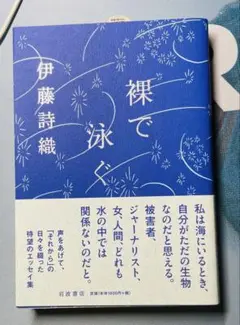 裸で
泳ぐ
伊藤詩織
私は海にいるとき、
自分がただの生物
なのだと思える。
被害者、
ジャーナリスト、
女、人間、どれも
水の中では
関係ないのだと。
声をあげて、
「それから」の
日々を綴った
待望のエッセイ集
岩波書店